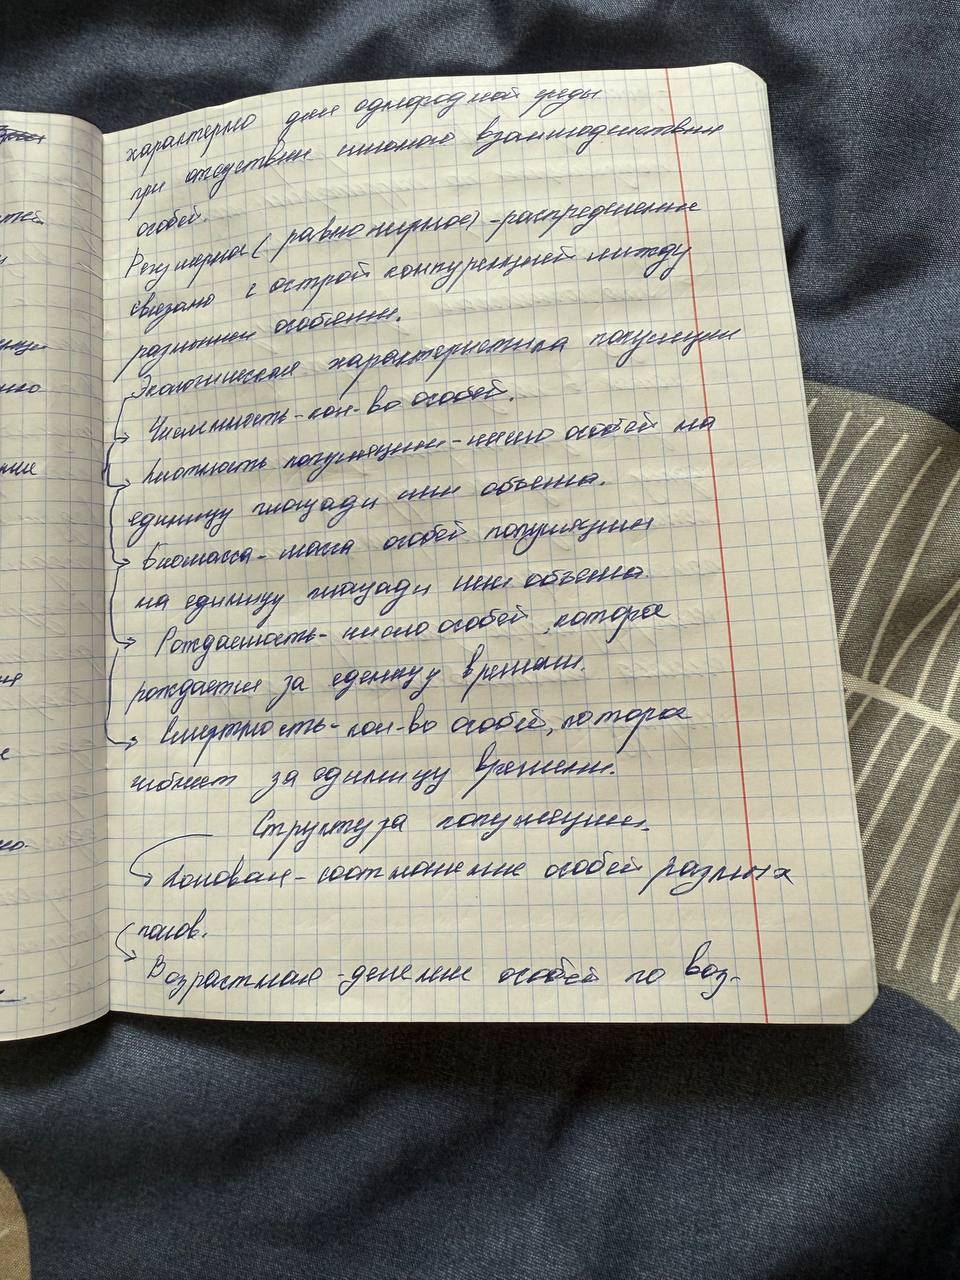 характерно для однородной среды
при отсутствии взаимодействия
особей.
Регулярное (равномерное) - распределение
связано с острой конкуренцией между
разными особями.
Экологические характеристика популяции
Численность - кол-во особей.
Плотность популяции - число особей на
единицу площади или объема.
Биомасса - масса особей популяции
на единицу площади или объема.
Рождаемость - число особей, которое
рождается за еденицу времени.
Смертность - кол-во особей, которое
гибнет за единицу времени.
Структура популяции.
Половая - соотношение особей разных
полов.
Возрастная - деление особей по воз-